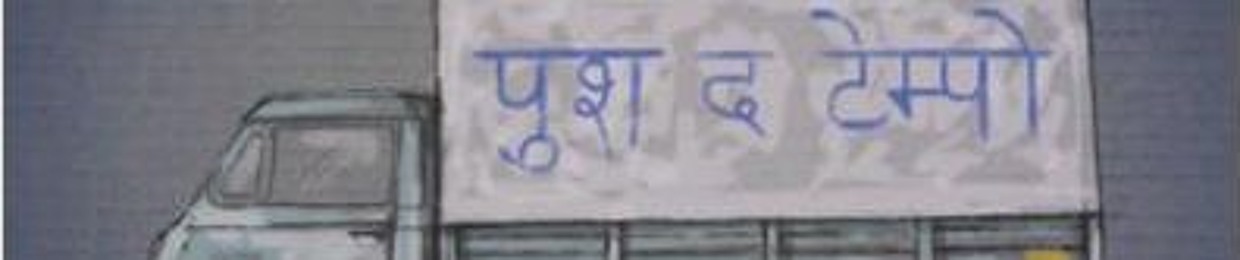 पुश द टेम्पो